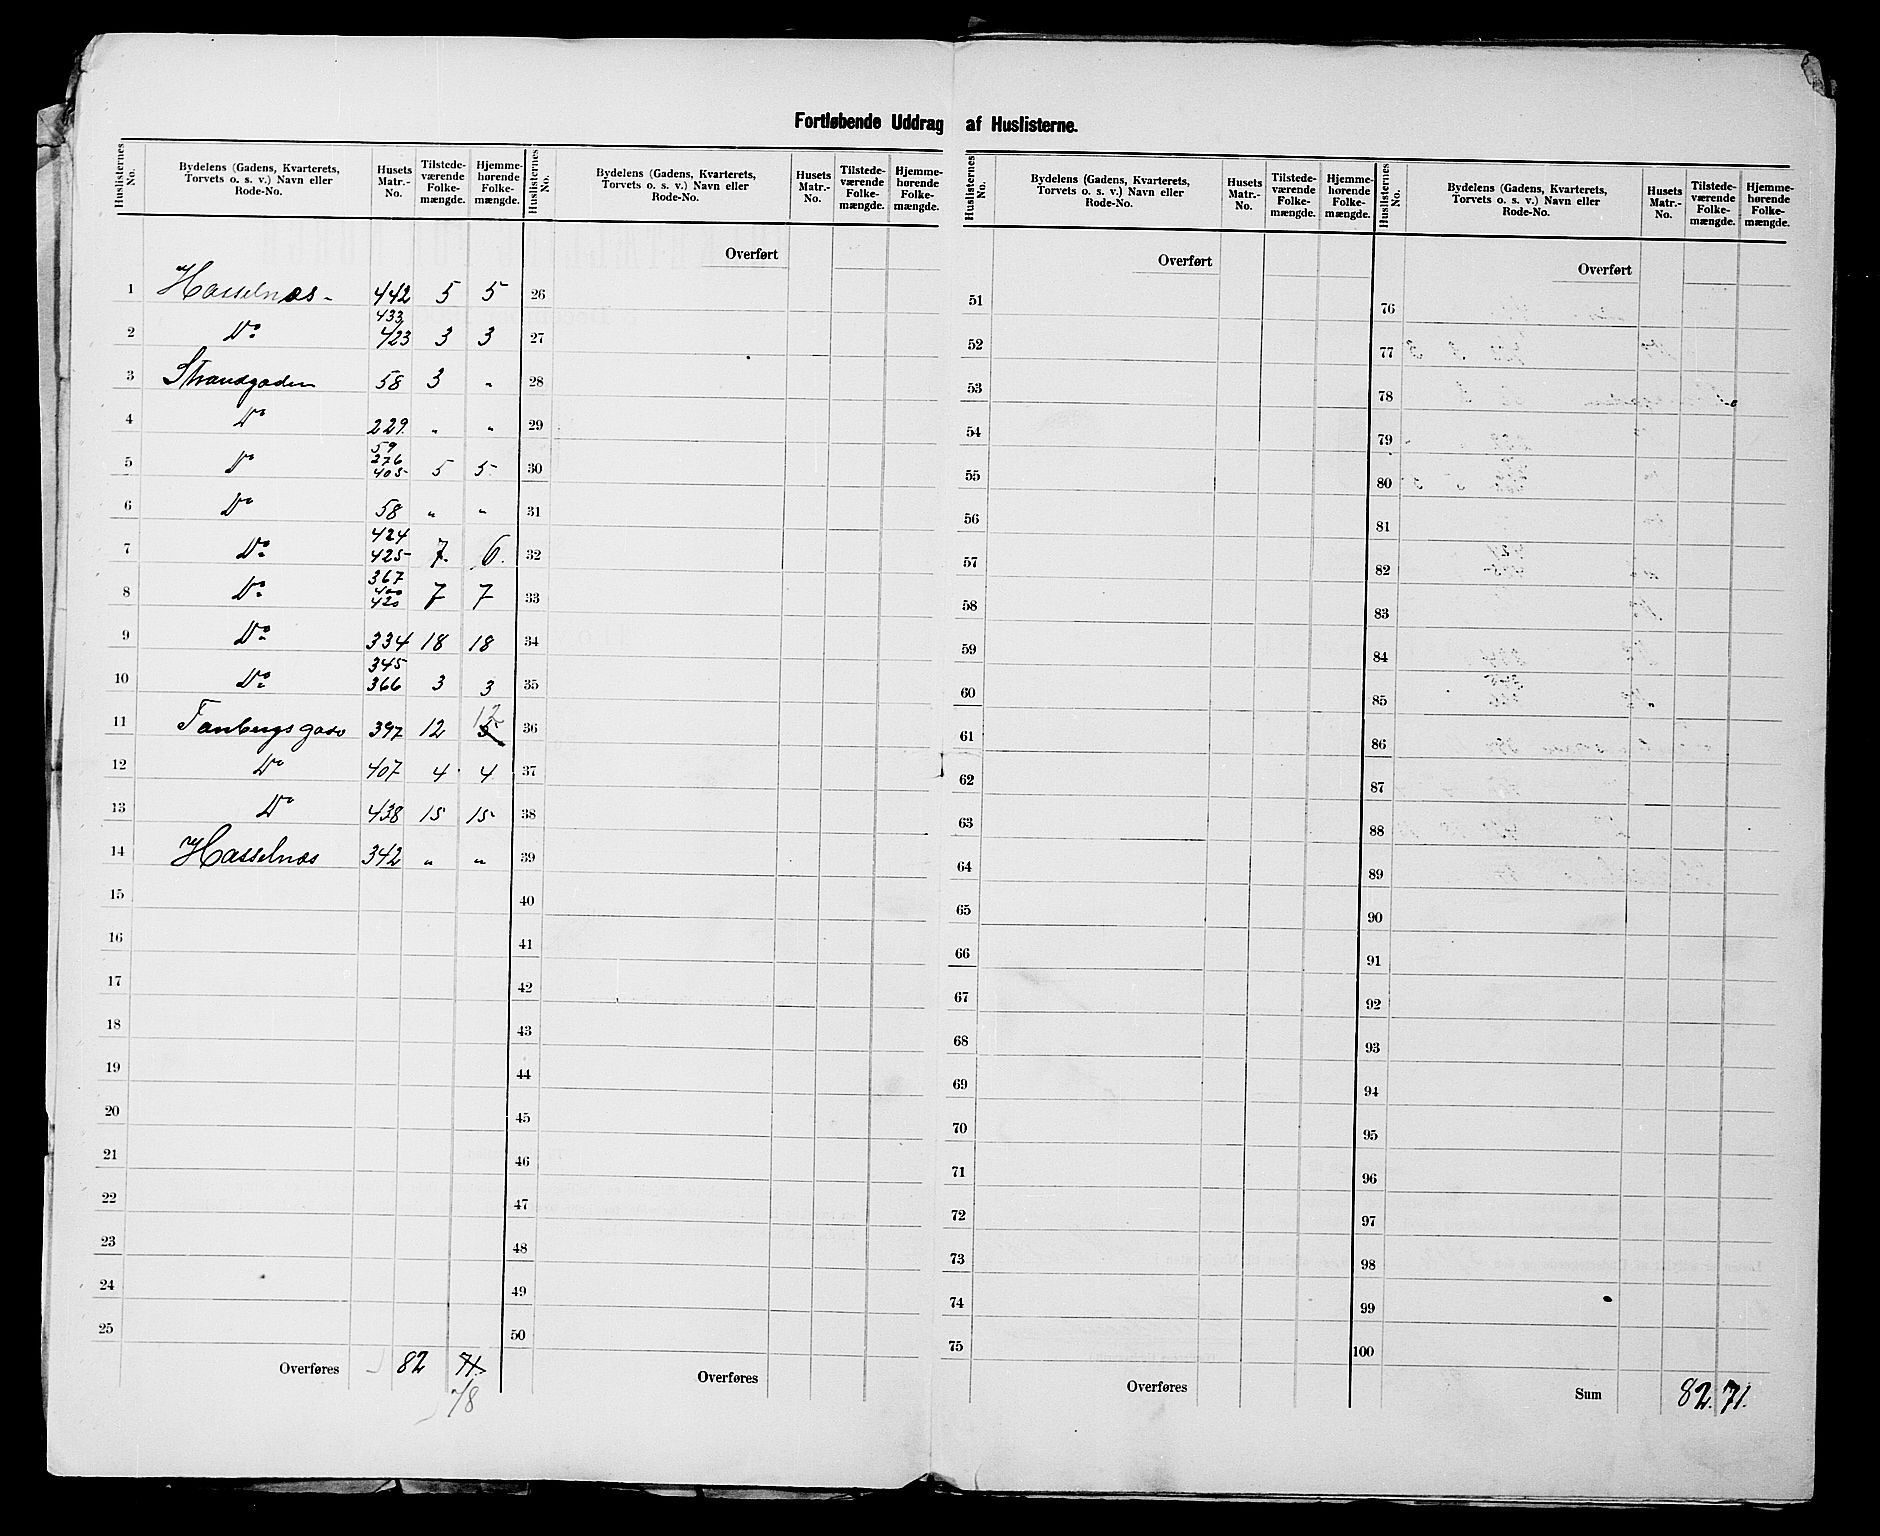 Fortløbende Uddrag af Huslisterne.
Huslisternes No. | Bydelens (Gadens, Kvarterets, Torvets o. s. v.) Navn eller Rode-No. | Husets Matr.-No. | Tilstedeværende Folkemængde. | Hjemmehørende Folkemængde.
1 Hasselnæs 442 5 5
2 Do 433 423 3 3
3 Strandgaden 58 3 "
4 Do 229 " "
5 Do 59 276 405 5 5
6 Do 58 " "
7 Do 424 425 7 6
8 Do 367 400 420 7 7
9 Do 334 18 18
10 Do 345 366 3 3
11 Tanbergsgade 397 12 5 12
12 Do 407 4 4
13 Do 438 15 15
14 Hasselnæs 342 " "
15
16
17
18
19
20
21
22
23
24
25
Overføres 82 71
78
Huslisternes No. | Bydelens (Gadens, Kvarterets, Torvets o. s. v.) Navn eller Rode-No. | Husets Matr.-No. | Tilstedeværende Folkemængde. | Hjemmehørende Folkemængde.
Overført
26
27
28
29
30
31
32
33
34
35
36
37
38
39
40
41
42
43
44
45
46
47
48
49
50
Overføres
Huslisternes No. | Bydelens (Gadens, Kvarterets, Torvets o. s. v.) Navn eller Rode-No. | Husets Matr.-No. | Tilstedeværende Folkemængde. | Hjemmehørende Folkemængde.
Overført
51
52
53
54
55
56
57
58
59
60
61
62
63
64
65
66
67
68
69
70
71
72
73
74
75
Overføres
Huslisternes No. | Bydelens (Gadens, Kvarterets, Torvets o. s. v.) Navn eller Rode-No. | Husets Matr.-No. | Tilstedeværende Folkemængde. | Hjemmehørende Folkemængde.
Overført
76
77
78
79
80
81
82
83
84
85
86
87
88
89
90
91
92
93
94
95
96
97
98
99
100
Sum 82. 71.